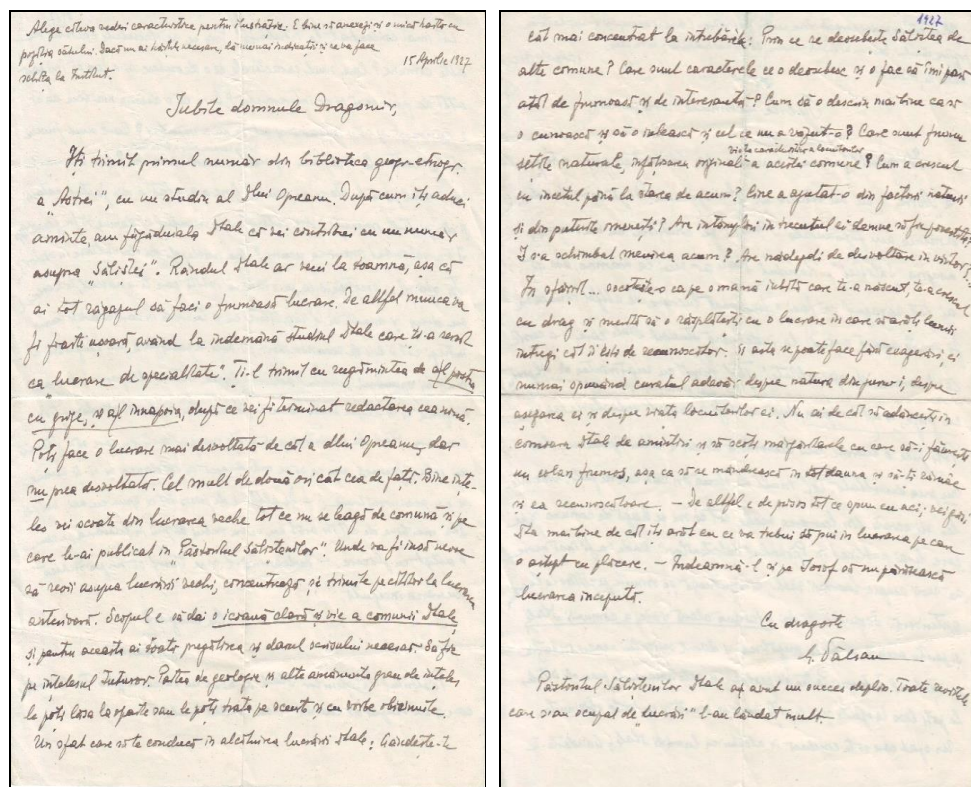 Alege câteva vederi caracteristice pentru ilustrație. E bine să anexezi și o mică hartă cu
poziția satului. Dacă nu ai hărțile necesare, dă numai indicații și se va face
schița la Institut.
15 Aprilie 1927
Iubite domnule Dragomir,
Îți trimit primul număr din biblioteca geogr-etnogr.
a "Astrei", cu un studiu al dlui Opreanu. După cum îți aduci
aminte, am făgăduiala Dtale că vei contribui cu un număr
asupra "Săliștei". Rândul Dtale ar veni la toamnă, așa că
ai tot răgazul să faci o frumoasă lucrare. De altfel munca va
fi foarte ușoară, având la îndemână studiul Dtale care ți-a servit
ca "lucrare de specialitate". Ți-l trimit cu rugămintea de a-l păstra
cu grije, și a-l înnapoia, după ce vei fi terminat redactarea cea nouă.
Poți face o lucrare mai desvoltată de cât a dlui Opreanu, dar
nu prea desvoltată. Cel mult de două ori cât cea de față. Bine înțe-
les vei scoate din lucrarea veche tot ce nu se leagă de comună și pe
care le-ai publicat în "Păstoritul Săliștenilor". Unde va fi însă nevoe
să revii asupra lucrării vechi, concentrează, și trimite pe cititor la lucrarea
anterioară. Scopul e să dai o icoană clară și vie a comunii Dtale,
și pentru aceasta ai toată pregătirea și darul scrisului necesar. Să fie
pe înțelesul tuturor. Partea de geologie și alte amănunte greu de înțeles
le poți lăsa la oparte sau le poți trata pe scurt și cu vorbe obicinuite.
Un sfat care să te conducă în alcătuirea lucrării Dtale: Gândește-te
1927
cât mai concentrat la întrebările: Prin ce se deosebește Săliștea de
alte comune? Care sunt caracterele ce o deosebesc și o fac să îmi pară
atât de frumoasă și de interesantă? Cum să o descriu mai bine ca să
o cunoască și să o iubească și cel ce nu a văzut-o? Care sunt frumu
viața caracteristică a locuitorilor
sețile naturale, înfățișarea originală a acestei comune? Cum a crescut
cu încetul până la starea de acum? Cine a ajutat-o din factorii naturii
și din puterile omenești? Are întâmplări în trecutul ei demne să fie povestite?
I s-a schimbat menirea acum? Are nădejdi de desvoltare în viitor?
În sfârșit... socotește-o ca pe o mamă iubită care te-a născut, te-a crescut
cu drag și merită să o răsplătești cu o lucrare în care să arăți lumii
întregi cât îi ești de recunoscător. Și asta se poate face fără exagerări ci
numai spunând curatul adevăr despre natura din juru-i, despre
așezarea ei și despre viața locuitorilor ei. Nu ai de cât să adâncești în
comoara Dtale de amintiri și să scoți mărgăritarele cu care să-i făurești
un colan frumos, așa ca să se mândrească în totdauna și să-ți rămâe
și ea recunoscătoare. — De altfel e de prisos tot ce spun eu aci, vei găsi
Dta mai bine de cât îți arăt eu ce va trebui să pui în lucrarea pe care
o aștept cu plăcere. — Îndeamnă-l și pe Iosof să nu părăsească
lucrarea începută.
Cu dragoste
G. Vâlsan
Păstoritul Săliștenilor Dtale a avut un succes deplin. Toate revistele
care s-au ocupat de "lucrări" l-au lăudat mult.